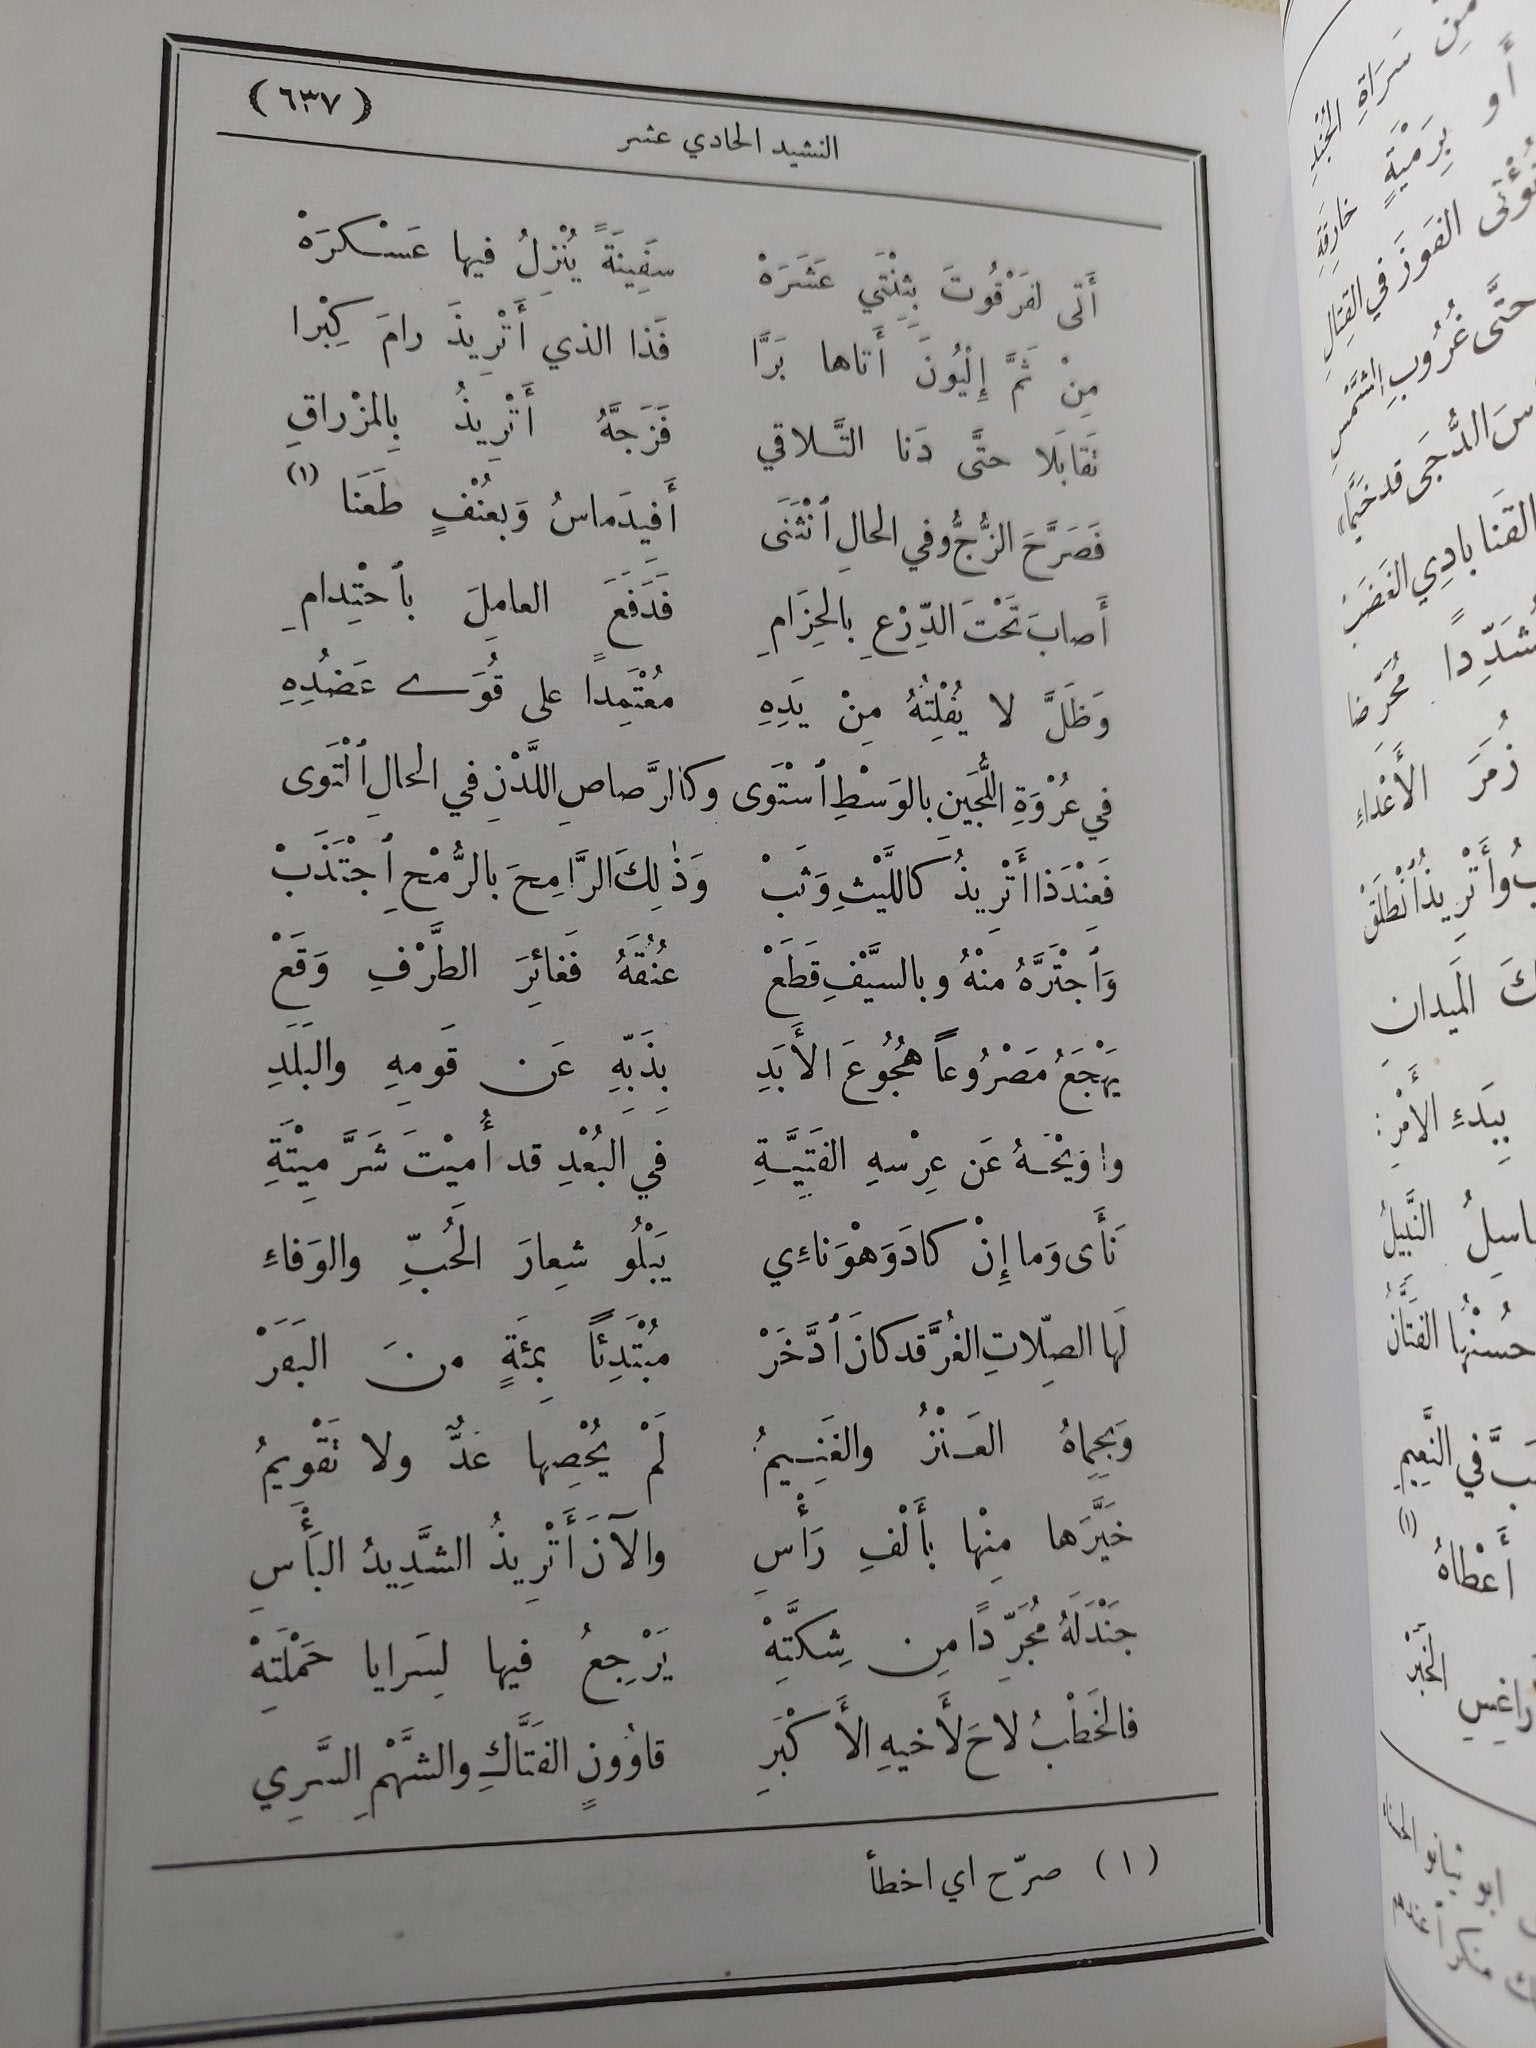 (٦٣٧)
النشيد الحادي عشر
أَتى لفَرْقُوتَ بِثِنْتَي عَشَرَهْ سفِينَةً يُنْزِلُ فيها عَسْكرَهْ
مِنْ ثَمَّ إِلْيُونَ أَتاها بَرَّا فَذا الذي أَتْرِيذَ رامَ كِبْرا
تقابَلا حتَّى دَنا التَّلاقي فَزَجَّهُ أَتْرِيذُ بِالمزْراقِ
فَصَرَّحَ الزُّجُّ وفي الحالِ ٱنْثَنَى أَفيدَماسُ وَبعُنْفٍ طَعَنَا (١)
أَصابَ تَحْتَ الدِّرْعِ بالحِزَامِ فَدَفَعَ العامِلَ بٱحْتِدامِ
وَظَلَّ لا يُفْلِتُهُ مِنْ يَدِهِ معْتَمِداً على قُوَے عَضُدِهِ
في عُرْوَةِ اللُّجَينِ بالوَسْطِ ٱسْتْوَى وكالرَّصاصِ اللَّدْنِ في الحالِ ٱلْتَوَى
فَعِنْدَذا أَتْرِيذُ كاللَّيْثِ وَثَبْ وَذٰلِكَ الرَّامِحَ بالرُّمْحِ ٱجْتَذَبْ
وَٱجْتَرَّهُ منْهُ وبالسيَّفِ قَطَعْ عنُقَهُ فَغائِرَ الطَّرْفِ وَقَعْ
يَهْجَعُ مَصْرُوعاً هُجُوعَ الأَبَدِ بِذَبِّهِ عَن قَومهِ والبَلَدِ
وا وَيْحَهُ عَن عِرْسهِ الفَتِيَّةِ في البُعْدِ قد أُميْتَ شَرَّ مِيْتَةِ
نَأَى وَما إِنْ كادَ وَهْوَ ناءِي يَبْلُو شعِارَ الحُبِّ والوَفاءِ
لَها الصِلاتِ الغُرَّ قد كانَ ٱدَّخَرْ مُبْتَدِئاً بمِئَةٍ منَ البَقَرْ
وَبحِماهُ العَنْزُ والغَنِيمُ لَمْ يُحْصِها عَدٌّ ولا تَقْوِيمُ
خيَّرَها مِنْها بأَلْفِ رَأْسِ والآنَ أَتْرِيذُ الشَّدِيدُ البَأْسِ
جَنْدَلَهُ مُجَرِّدًا مِن شِكَّتِهْ يَرْجِعُ فيها لِسَرايا حَمْلَتِهْ
فالخَطْبُ لاحَ لأَخيهِ الأَكْبَرِ قاوُونٍ الفَتَّاكِ والشَّهْمِ السَّرِي
(١) صرّح اي اخطأ